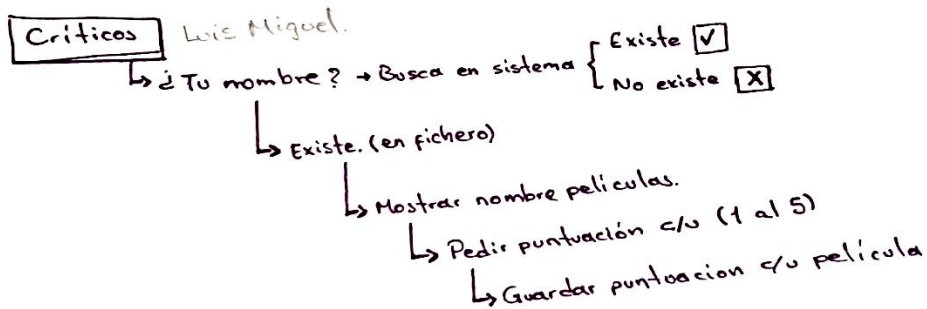 Críticos Luis Miguel.
¿Tu nombre? → Busca en sistema { Existe ☑
No existe ☒
Existe. (en fichero)
Mostrar nombre películas.
Pedir puntuación c/u (1 al 5)
Guardar puntuacion c/u película